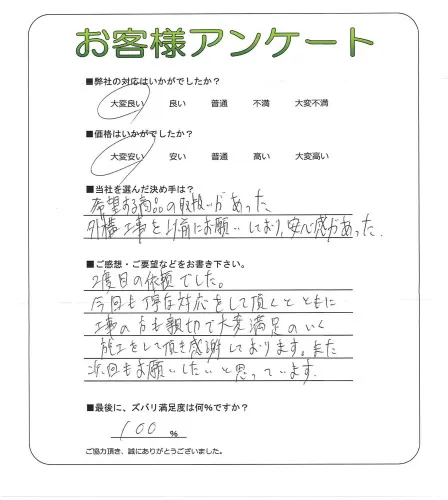 お客様アンケート
■弊社の対応はいかがでしたか？
大変良い 良い 普通 不満 大変不満
■価格はいかがでしたか？
大変安い 安い 普通 高い 大変高い
■当社を選んだ決め手は？
希望する商品の取扱いがあった。
外構工事を以前にお願いしており、安心感があった。
■ご感想・ご要望などをお書き下さい。
2度目の依頼でした。
今回も丁寧な対応をして頂くとともに
工事の方も親切で大変満足のいく
施工をして頂き感謝しております。また
次回もお願いしたいと思っています。
■最後に、ズバリ満足度は何%ですか？
100 %
ご協力頂き、誠にありがとうございました。